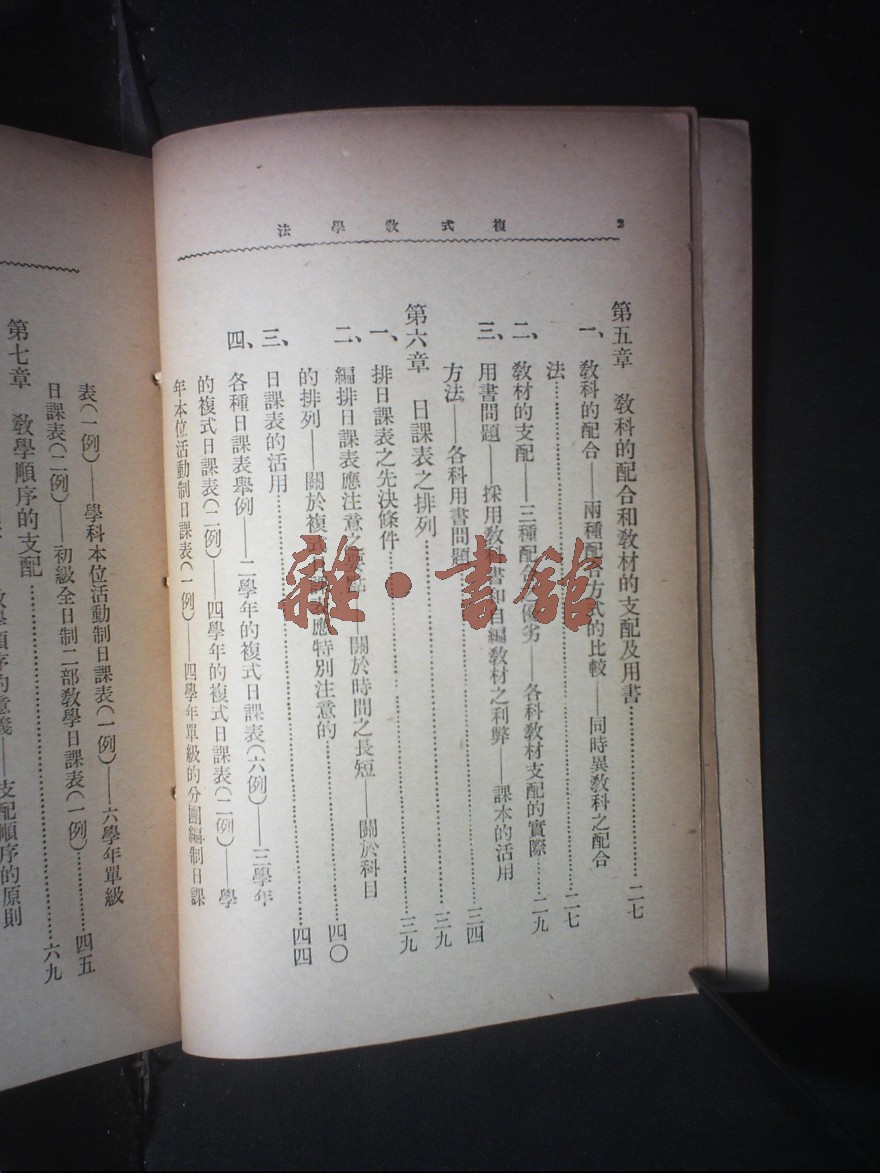 2
複式教學法
第五章　教科的配合和教材的支配及用書………二七
一、教科的配合——兩種配合方式的比較——同時異教科之配合
法………二七
二、教材的支配——三種配合之優劣——各科教材支配的實際……二九
三、用書問題——採用教科書和自編教材之利弊——課本的活用
方法——各科用書問題………三四
………三九
第六章　日課表之排列………三九
一、排日課表之先決條件………
二、編排日課表應注意之——關於時間之長短——關於科目
的排列——關於複式應特別注意的………四〇
三、日課表的活用………四四
四、各種日課表舉例——二學年的複式日課表(六例)——三學年
的複式日課表(二例)——四學年的複式日課表(二例)——學
年本位活動制日課表(一例)——四學年單級的分團編制日課
表(一例)——學科本位活動制日課表(一例)——六學年單級
日課表(二例)——初級全日制二部教學日課表(一例)……四五
第七章　教學順序的支配………六九
教學順序的意義——支配順序的原則
雜·書館